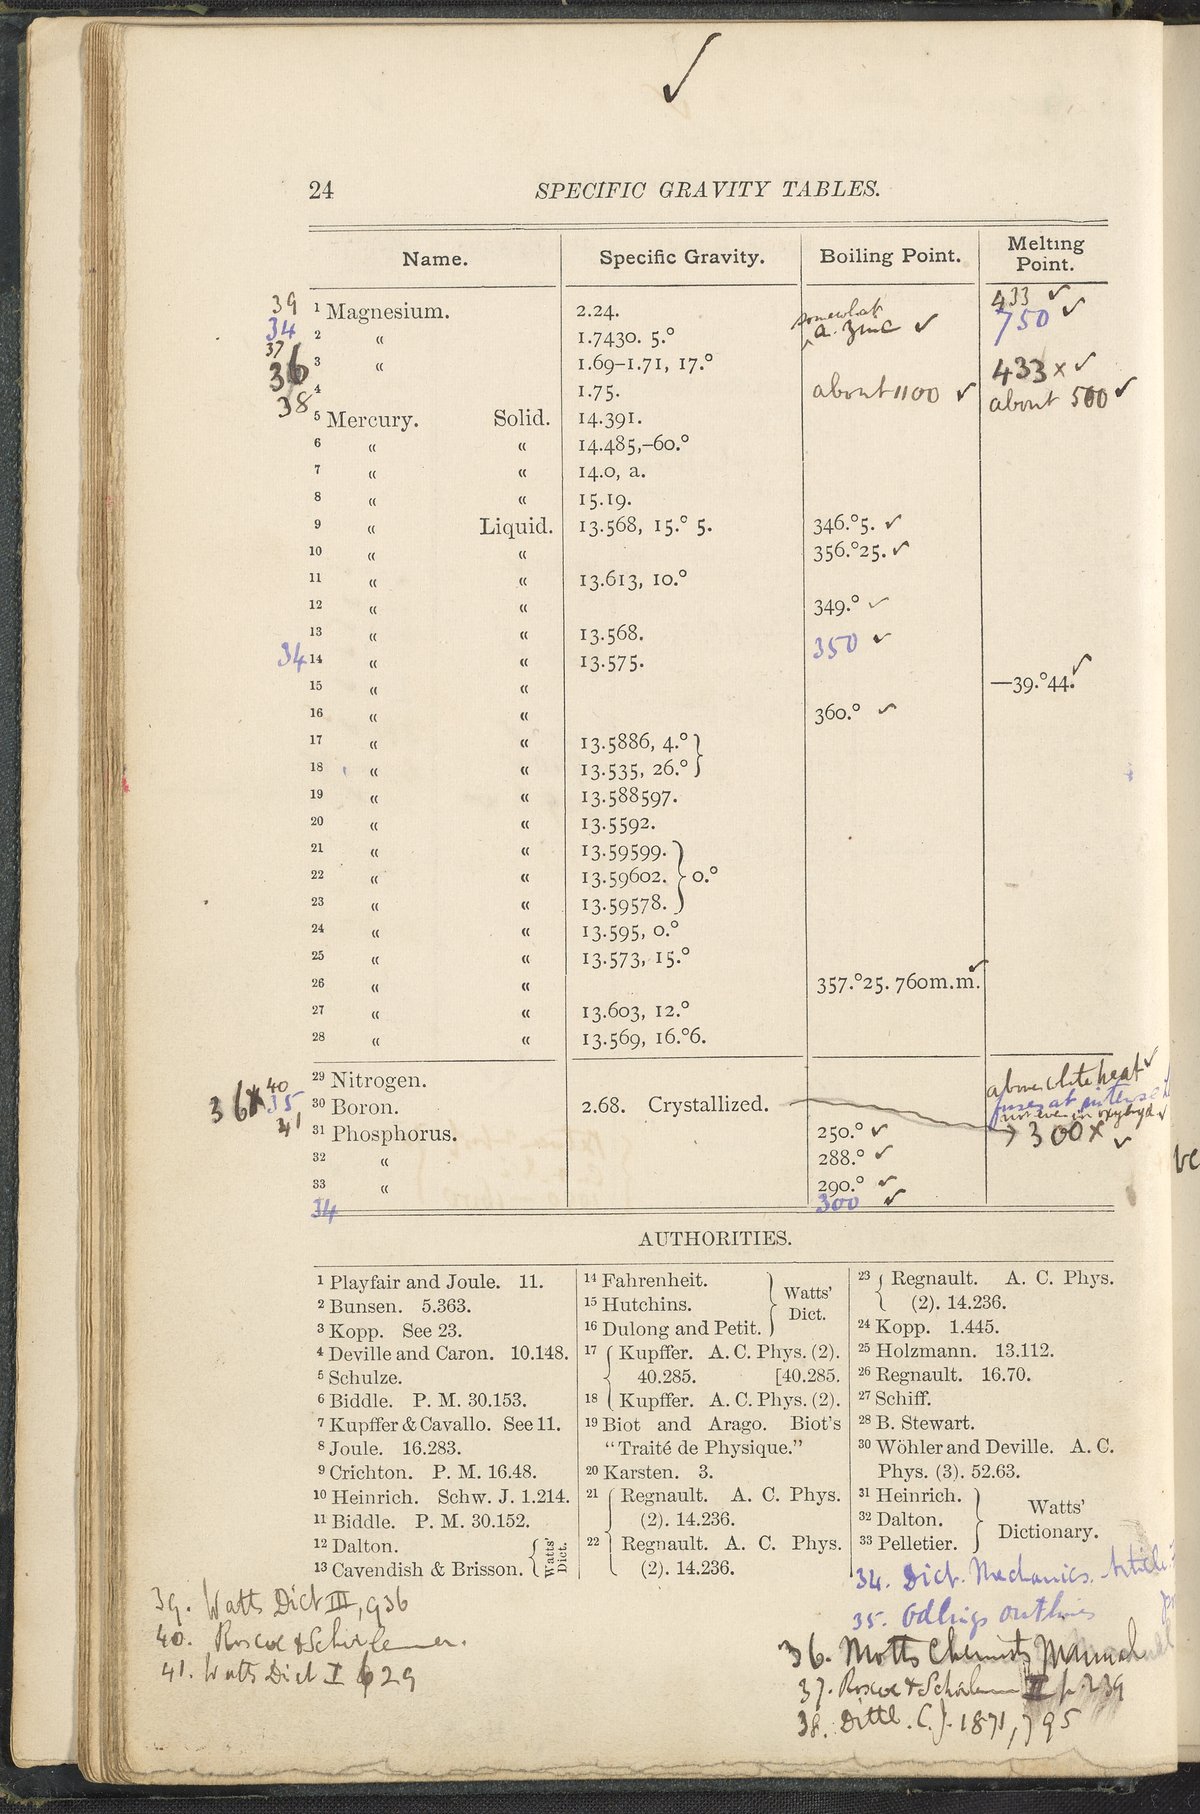 ✓
24 SPECIFIC GRAVITY TABLES.
Name. Specific Gravity. Boiling Point. Melting Point.
39 1 Magnesium. 2.24. somewhat 433 ✓
34 2 " 1.7430. 5.° a. zinc ✓ 750 ✓
37
36 3 " 1.69–1.71, 17.° 433 × ✓
38 4 1.75. about 1100 ✓ about 500 ✓
5 Mercury. Solid. 14.391.
6 " " 14.485,–60.°
7 " " 14.0, a.
8 " " 15.19.
9 " Liquid. 13.568, 15.° 5. 346.°5. ✓
10 " " 356.°25. ✓
11 " " 13.613, 10.°
12 " " 349.° ✓
13 " " 13.568. 350 ✓
34 14 " " 13.575.
15 " " —39.°44. ✓
16 " " 360.° ✓
17 " " 13.5886, 4.° }
18 " " 13.535, 26.° }
19 " " 13.588597.
20 " " 13.5592.
21 " " 13.59599. }
22 " " 13.59602. } 0.°
23 " " 13.59578. }
24 " " 13.595, 0.°
25 " " 13.573, 15.°
26 " " 357.°25. 760m.m. ✓
27 " " 13.603, 12.°
28 " " 13.569, 16.°6.
29 Nitrogen. above white heat ✓
36× 40 35, 41 30 Boron. 2.68. Crystallized. fuses at intense
not even in oxyhyd ✓
31 Phosphorus. 250.° ✓ 300× ✓
32 " 288.° ✓
33 " 290.° ✓
34 300 ✓
AUTHORITIES.
1 Playfair and Joule. 11.
2 Bunsen. 5.363.
3 Kopp. See 23.
4 Deville and Caron. 10.148.
5 Schulze.
6 Biddle. P. M. 30.153.
7 Kupffer & Cavallo. See 11.
8 Joule. 16.283.
9 Crichton. P. M. 16.48.
10 Heinrich. Schw. J. 1.214.
11 Biddle. P. M. 30.152.
12 Dalton. { Watts'
13 Cavendish & Brisson. { Dict.
14 Fahrenheit. }
15 Hutchins. } Watts' Dict.
16 Dulong and Petit. }
17 { Kupffer. A. C. Phys. (2).
40.285. [40.285.
18 { Kupffer. A. C. Phys. (2).
19 Biot and Arago. Biot's
"Traité de Physique."
20 Karsten. 3.
21 { Regnault. A. C. Phys.
(2). 14.236.
22 { Regnault. A. C. Phys.
(2). 14.236.
23 { Regnault. A. C. Phys.
(2). 14.236.
24 Kopp. 1.445.
25 Holzmann. 13.112.
26 Regnault. 16.70.
27 Schiff.
28 B. Stewart.
30 Wöhler and Deville. A. C.
Phys. (3). 52.63.
31 Heinrich. }
32 Dalton. } Watts' Dictionary.
33 Pelletier. }
34. Dict. Mechanics. Article
35. Odlings outlines
36. Motts Chemists Manual
37. Roscoe & Schorlemmer II p. 239
38. Dittl. C.J. 1871, 795
39. Watts Dict III, 936
40. Roscoe & Schorlemmer.
41. Watts Dict I 629